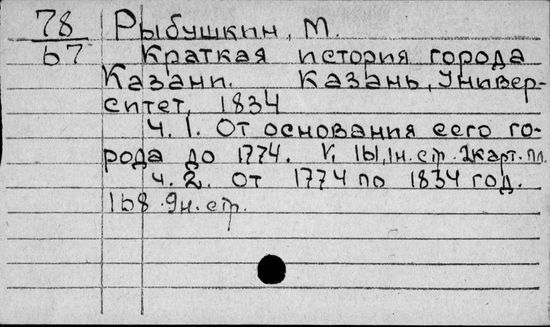 78 Рыбушкин, М.
67 Краткая история города
Казани. Казань, Универ-
ситет, 1834
Ч. 1. От основания сего го-
рода до 1774. V, 161, 1н.стр. 2карт.пл.
Ч. 2. От 1774 по 1834 год.
168. 9н.стр.